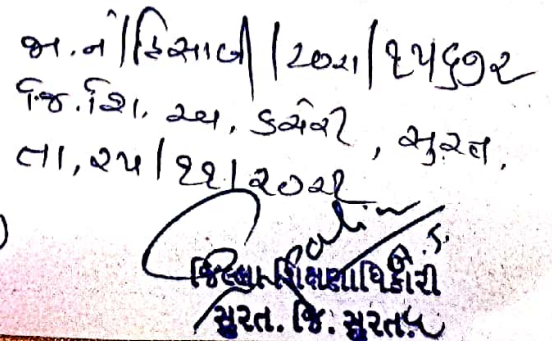 જા.નં/હિસાબી/૨૦૨૧/૧૫૬૭૨
જિ.શિ. કચેરી, સુરત.
તા.૨૫/૧૧/૨૦૨૧
જિલ્લા શિક્ષણાધિકારી
સુરત. જિ. સુરત.